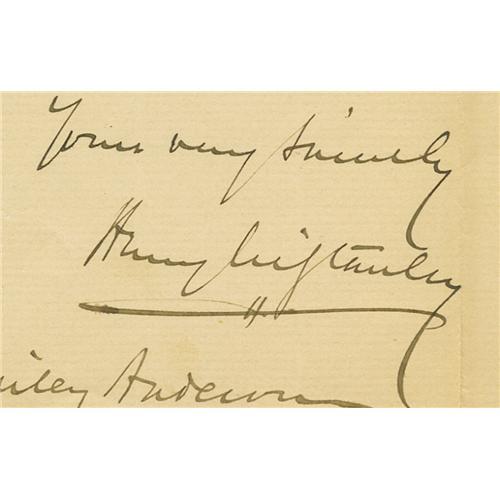 Yours very sincerely
Henry M Stanley
Anderson